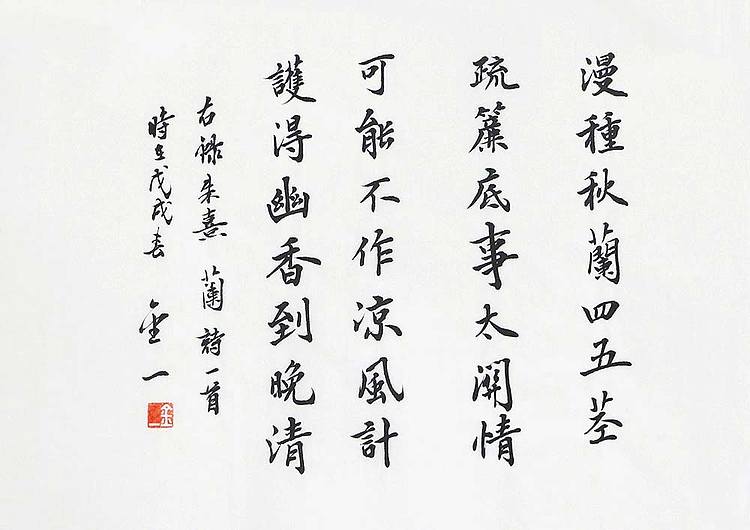 漫種秋蘭四五茎
疏簾底事太關情
可能不作凉風計
護得幽香到晚清
右錄朱熹 蘭 詩一首
時在戊戌春
金一